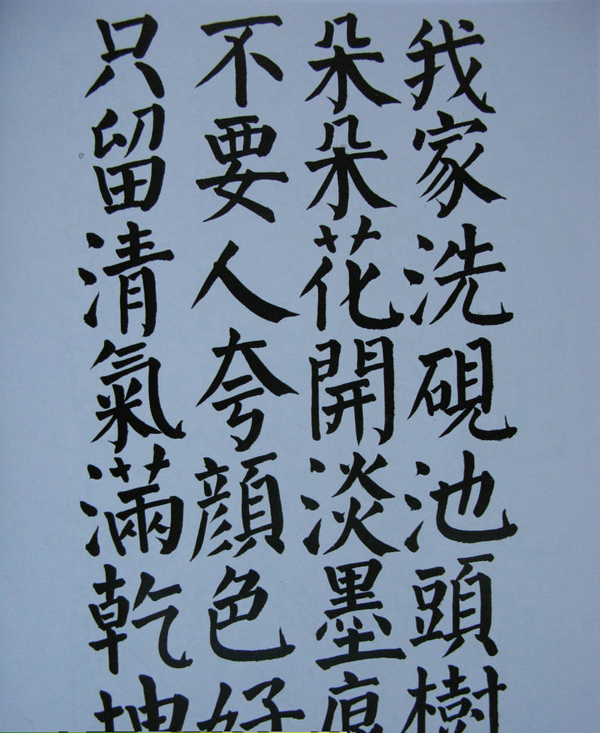 我家洗硯池頭樹
朵朵花開淡墨痕
不要人夸顔色好
只留清氣滿乾坤